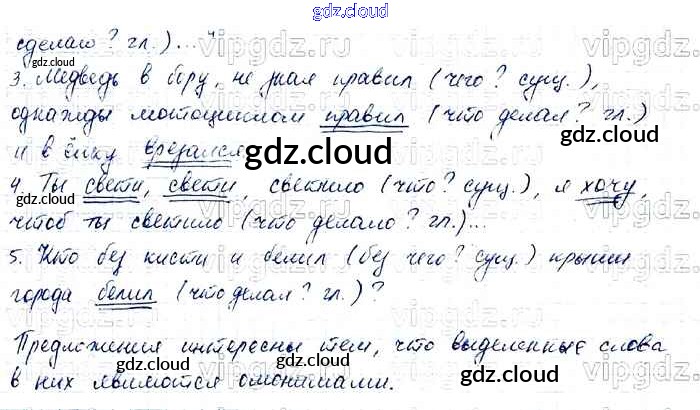 gdz.cloud
сделало? гл.)...
3. Медведь в бору, не зная правил (чего? сущ.),
однажды мотоциклом правил (что делал? гл.)
и в ёлку врезался
gdz.cloud
4. Ты свети, свети, светило (что? сущ.), я хочу,
чтоб ты светило (что делало? гл.)...
5. Кто без кисти и белил (без чего? сущ.) крыши
города белил (что делал? гл.)?
Предложения интересны тем, что выделенные слова
в них являются омонимами.
gdz.cloud
gdz.cloud
vipgdz.ru